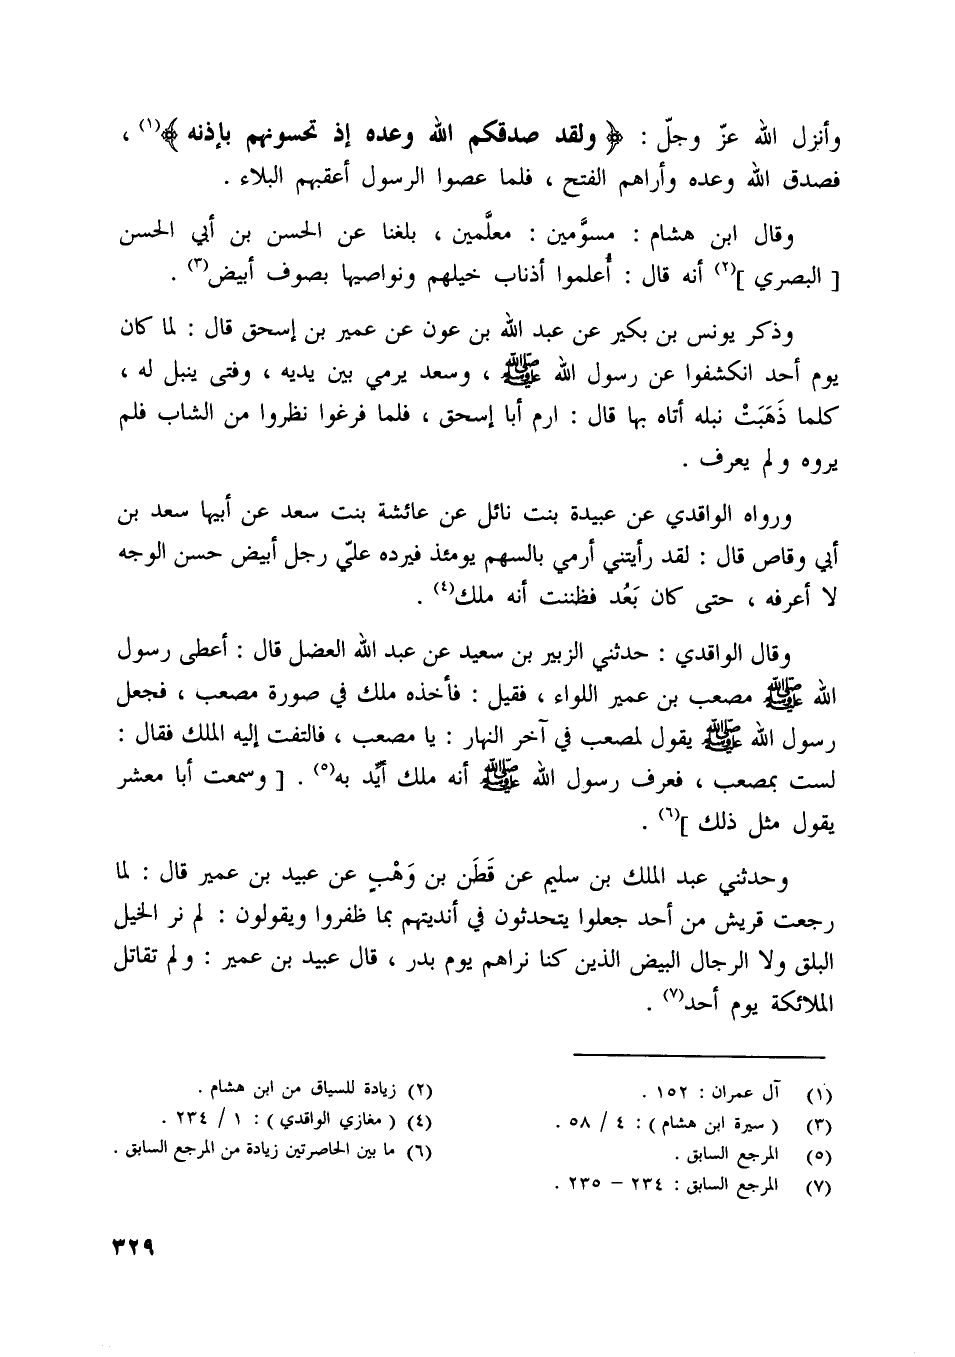 وأنزل الله عزّ وجلّ : ﴿ ولقد صدقكم الله وعده إذ تحسونهم بإذنه ﴾(١) ،
فصدق الله وعده وأراهم الفتح ، فلما عصوا الرسول أعقبهم البلاء .
وقال ابن هشام : مسوَّمين : معلَّمين ، بلغنا عن الحسن بن أبي الحسن
[ البصري ](٢) أنه قال : أُعلموا أذناب خيلهم ونواصيها بصوف أبيض(٣) .
وذكر يونس بن بكير عن عبد الله بن عون عن عمير بن إسحق قال : لما كان
يوم أحد انكشفوا عن رسول الله ﷺ ، وسعد يرمي بين يديه ، وفتى ينبل له ،
كلما ذَهَبَتْ نبله أتاه بها قال : ارم أبا إسحق ، فلما فرغوا نظروا من الشاب فلم
يروه ولم يعرف .
ورواه الواقدي عن عبيدة بنت نائل عن عائشة بنت سعد عن أبيها سعد بن
أبي وقاص قال : لقد رأيتني أرمي بالسهم يومئذ فيرده عليّ رجل أبيض حسن الوجه
لا أعرفه ، حتى كان بَعُد فظننت أنه ملك(٤) .
وقال الواقدي : حدثني الزبير بن سعيد عن عبد الله العضل قال : أعطى رسول
الله ﷺ مصعب بن عمير اللواء ، فقيل : فأخذه ملك في صورة مصعب ، فجعل
رسول الله ﷺ يقول لمصعب في آخر النهار : يا مصعب ، فالتفت إليه الملك فقال :
لست بمصعب ، فعرف رسول الله ﷺ أنه ملك أيِّد به(٥) . [ وسمعت أبا معشر
يقول مثل ذلك ](٦) .
وحدثني عبد الملك بن سليم عن قَطَن بن وَهْبٍ عن عبيد بن عمير قال : لما
رجعت قريش من أحد جعلوا يتحدثون في أنديتهم بما ظفروا ويقولون : لم نر الخيل
البلق ولا الرجال البيض الذين كنا نراهم يوم بدر ، قال عبيد بن عمير : ولم تقاتل
الملائكة يوم أحد(٧) .
(١) آل عمران : ١٥٢ .
(٢) زيادة للسياق من ابن هشام .
(٣) ( سيرة ابن هشام ) : ٤ / ٥٨ .
(٤) ( مغازي الواقدي ) : ١ / ٢٣٤ .
(٥) المرجع السابق .
(٦) ما بين الحاصرتين زيادة من المرجع السابق .
(٧) المرجع السابق : ٢٣٤ – ٢٣٥ .
٣٢٩